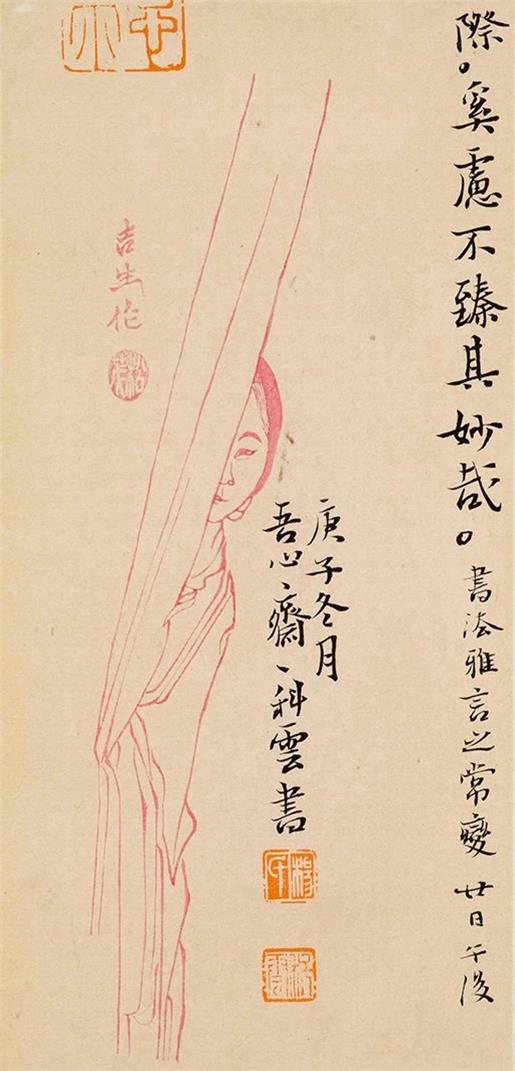 際。奚慮不臻其妙哉。書法雅言之常變 廿日午後
庚子冬月
吾心、齋、科雲書
吉生作